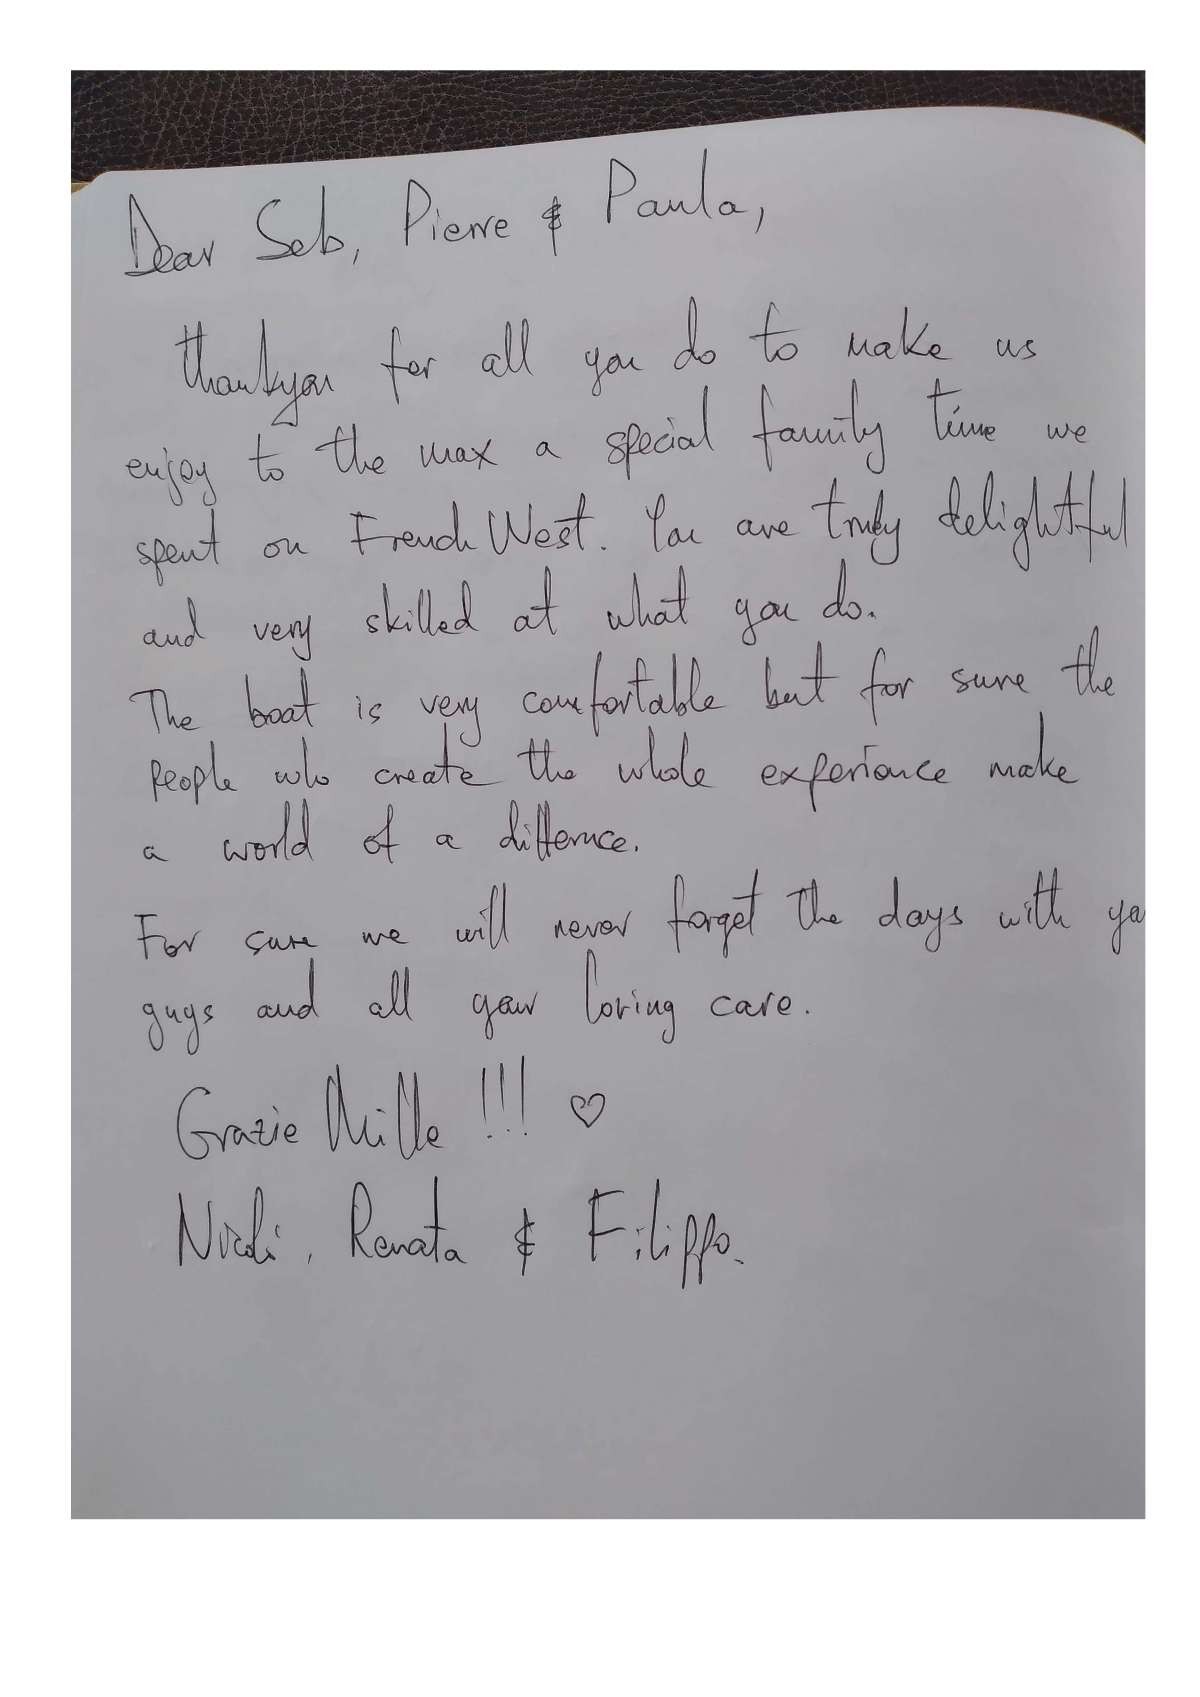 Dear Seb, Pierre & Paula,
thankyou for all you do to make us
enjoy to the max a special family time we
spent on French West. You are truly delightful
and very skilled at what you do.
The boat is very comfortable but for sure the
people who create the whole experience make
a world of a difference.
For sure we will never forget the days with yo
guys and all your loving care.
Grazie Mille !!! ♡
Renata & Filippo.